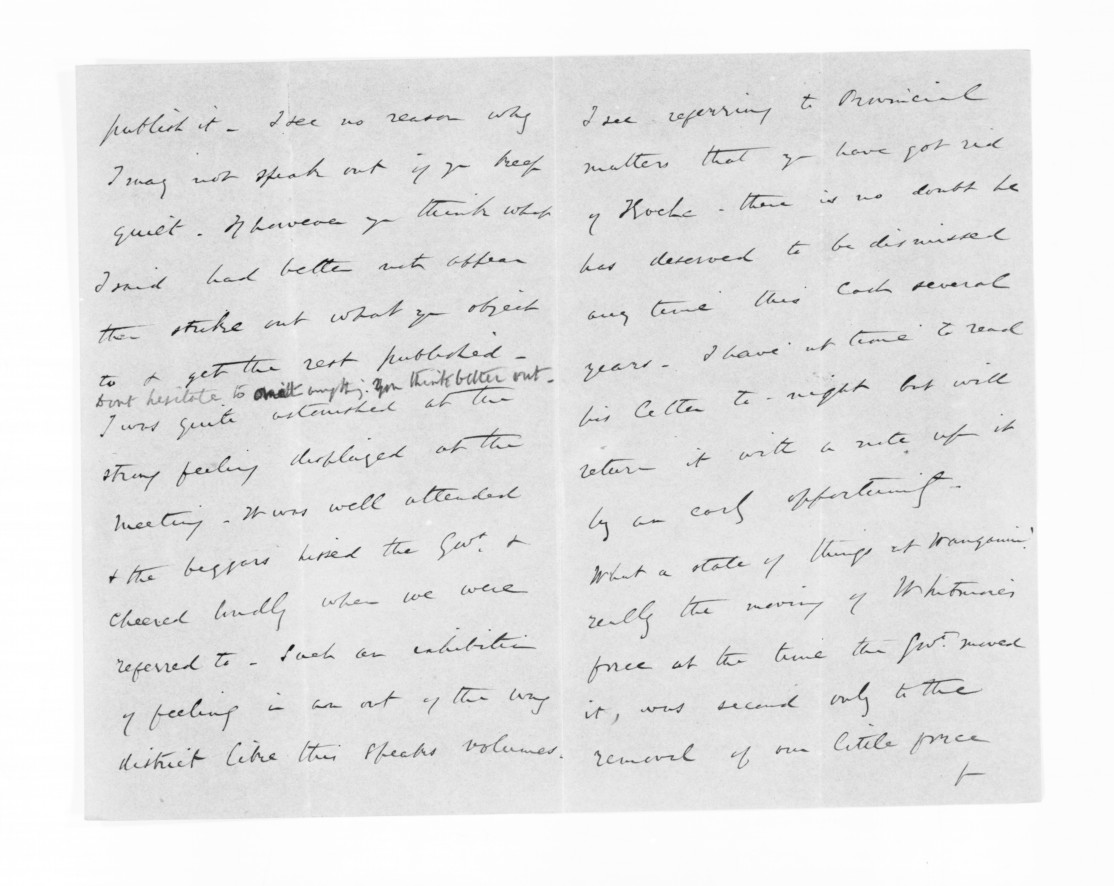 publish it - I see no reason why
I may not speak out if yu keep
quiet. If however yu think what
I said had better not appear
then strike out what yu object
to & get the rest published -
Dont hesitate to omit anythg. you think better out -
I was quite astonished at the
strong feeling displayed at the
meeting - It was well attended
& the beggars hissed the Govt. &
cheered loudly when we were
referred to - Such an exhibition
of feeling in an out of the way
district like this speaks volumes.
I see referring to Provincial
matters that yu have got rid
of - there is no doubt he
has deserved to be dismissed
any time this last several
years - I have nt time to read
his letter to-night but will
return it with a note upn it
by an early opportunity -
What a state of things at Wanganui!
really the moving of Whitmore's
force at the time the Govt. moved
it, was second only to the
removal of our little force